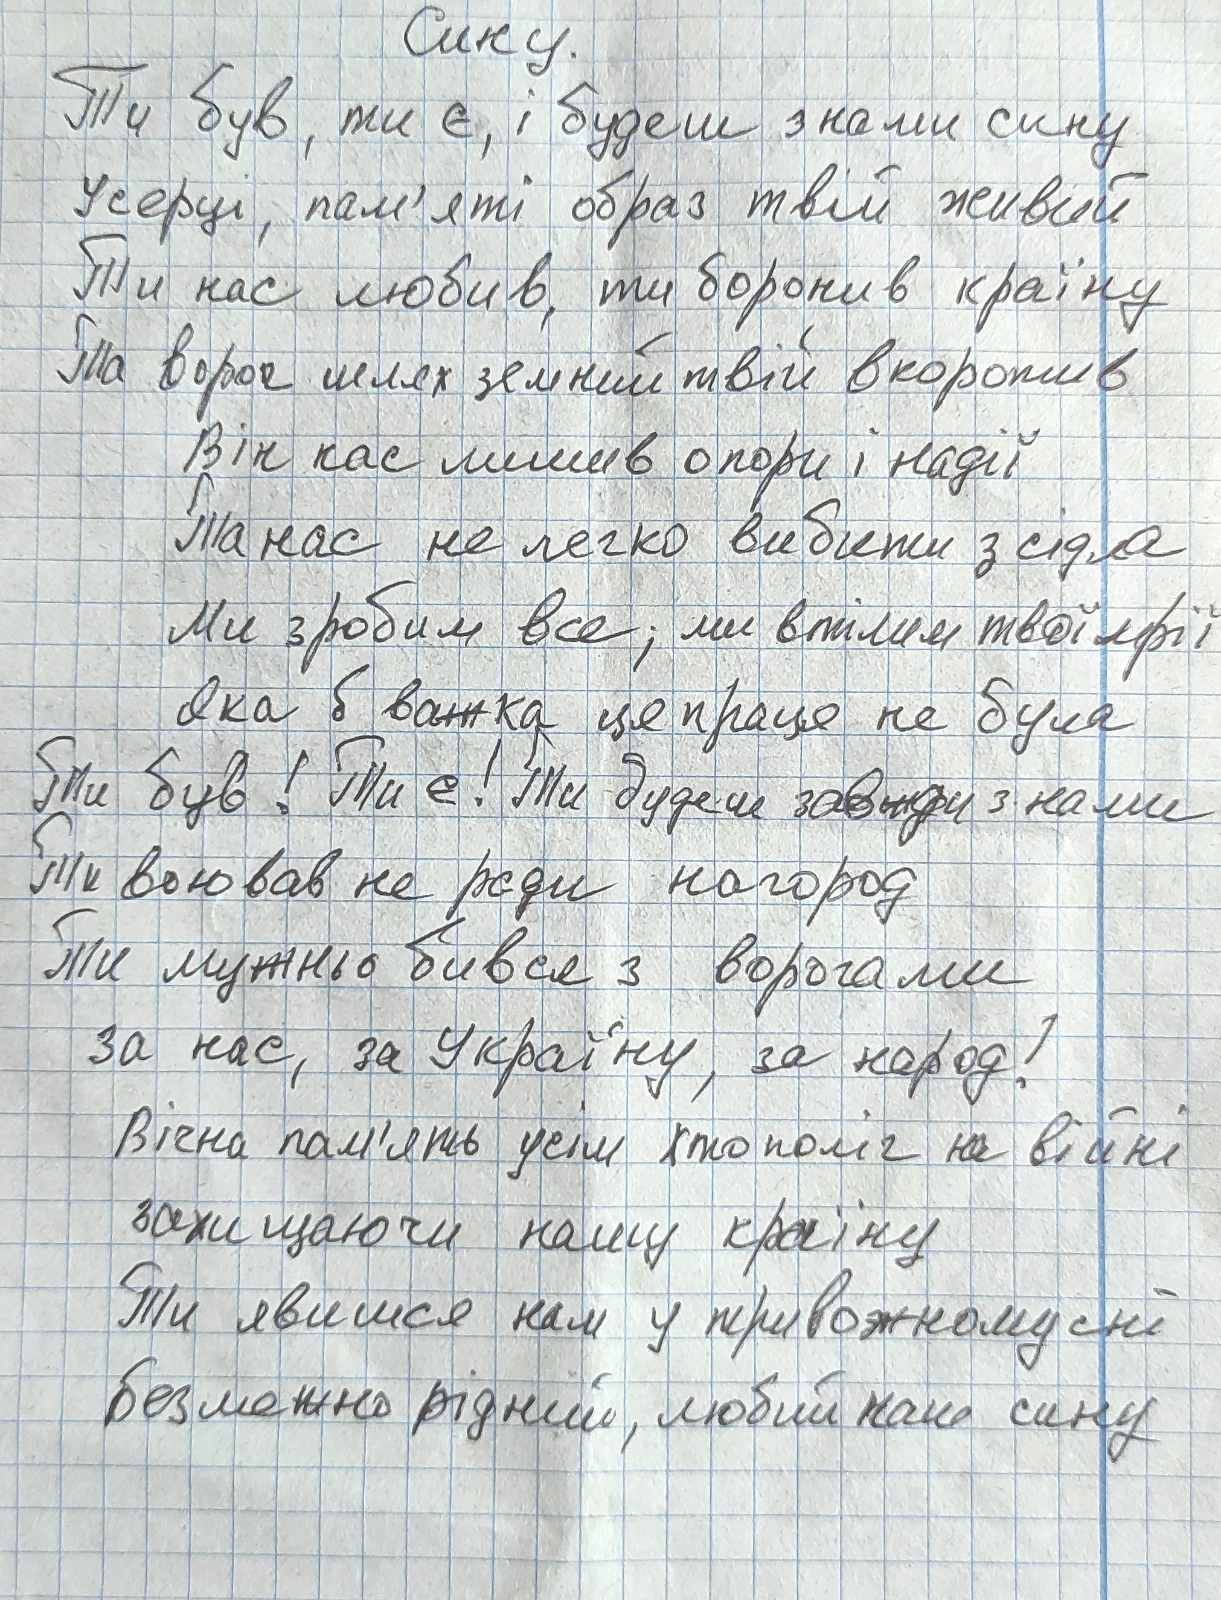 Сину.
Ти був, ти є, і будеш з нами сину
У серці, пам'яті образ твій живий
Ти нас любив, ти боронив країну
Та ворог шлях земний твій вкоротив
Він нас лишив опори і надії
Та нас не легко вибити з сідла
Ми зробим все, ми втілим твої мрії
Яка б важка ця праця не була
Ти був! Ти є! Ти будеш завжди з нами
Ти воював не ради нагород
Ти мужньо бився з ворогами
За нас, за Україну, за народ!
Вічна пам'ять усім хто поліг на війні
захищаючи нашу країну
Ти явишся нам у тривожному сні
Безмежно рідний, любий наш сину